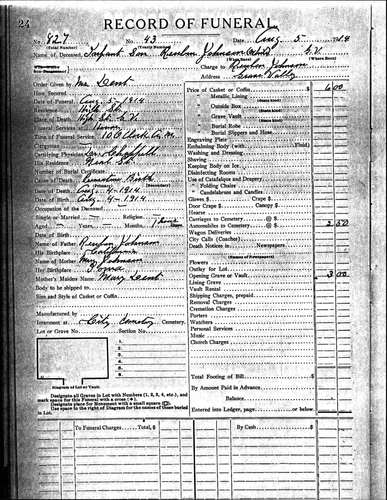 24
RECORD OF FUNERAL
No. 827 No. 43 Date, Aug 5 1914
(Total Number) (Yearly Number)
Name of Deceased, Infant Son Reuben Johnson G.V.
Charge to Reuben Johnson
Address Grass Valley
Order Given by Mr Dent
How Secured
Date of Funeral Aug 5-1914
Residence
Place of Death G.V.
Funeral Services at
Time of Funeral Service 10 O'Clock A.M.
Clergyman
Certifying Physician
His Residence
Number of Burial Certificate
Cause of Death Birth
(Primary) (Secondary)
Date of Death Aug 4-1914
Date of Birth Aug 4-1914
Occupation of the Deceased
Single or Married Religion
Aged Years Months
Date of Birth
Name of Father Reuben Johnson
His Birthplace
Name of Mother Johnson
Her Birthplace
Mother's Maiden Name Mary Dent
Body to be shipped to
Size and Style of Casket or Coffin
Manufactured by
Interment at City Cemetery Cemetery
Lot or Grave No. Section No.
1.
2.
3.
4.
5.
6.
Diagram of Lot or Vault.
Designate all Graves in Lot with Numbers (1, 2, 3, 4, etc.), and
mark space for this Funeral with a cross
Designate place for Monument with a small square
Use space to the right of Diagram for the names of those buried
in Lot.
Price of Casket or Coffin 6 00
Metallic Lining
(State Kind)
Outside Box
(State Kind)
Grave Vault
(State Kind)
Burial Robe
(State Kind)
Burial Slippers and Hose
Engraving Plate
Embalming Body (with Fluid)
Washing and Dressing
Shaving
Keeping Body on Ice
Disinfecting Rooms
Use of Catafalque and Drapery
" Folding Chairs
" Candelabrum and Candles
Gloves $ Crape $
Door Crape $ Canopy $
Hearse
Carriages to Cemetery @ $
Automobiles to Cemetery @ $ 2 50
Wagon Deliveries
City Calls (Coaches)
Death Notices in Newspapers
(Names of Newspapers)
Flowers
Outlay for Lot
Opening Grave or Vault 3 00
Lining Grave
Vault Rental
Shipping Charges, prepaid
Removal Charges
Cremation Charges
Porters
Watchers
Personal Services
Music
Church Charges
Total Footing of Bill $
By Amount Paid in Advance
Balance
Entered into Ledger, page or below.
To Funeral Charges Total, $ By Cash $